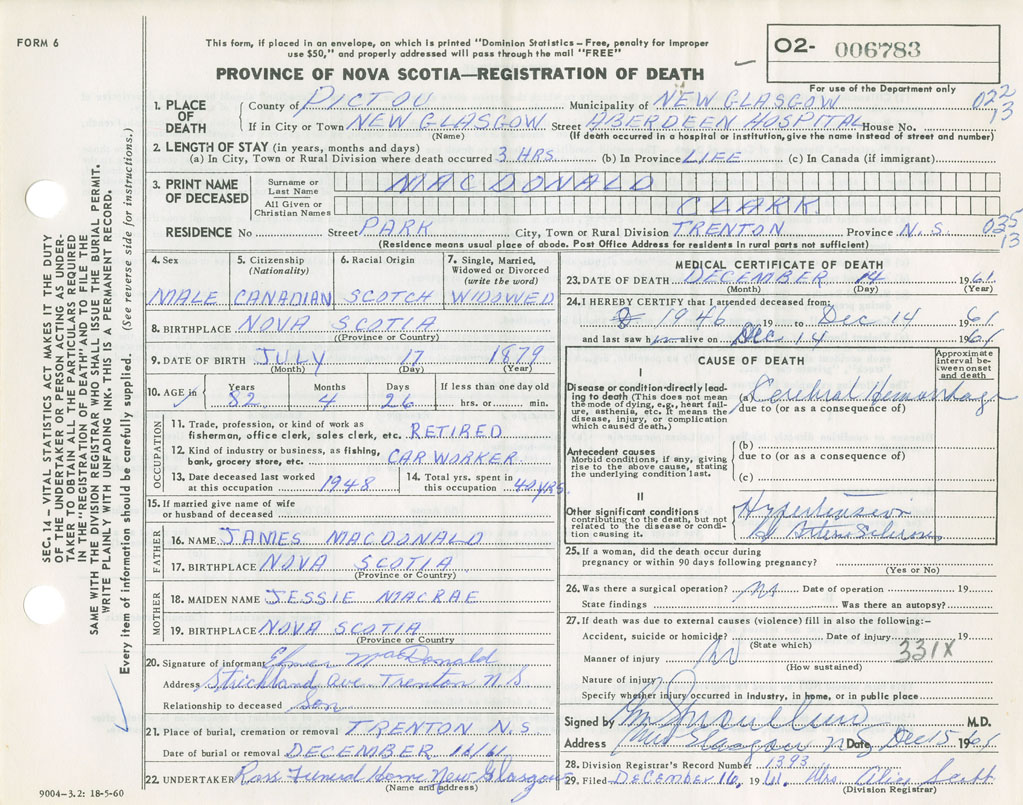 FORM 6
This form, if placed in an envelope, on which is printed "Dominion Statistics – Free, penalty for improper
use $50," and properly addressed will pass through the mail "FREE"
PROVINCE OF NOVA SCOTIA—REGISTRATION OF DEATH
02- 006783
For use of the Department only
1. PLACE OF DEATH
County of PICTOU Municipality of NEW GLASGOW 022
If in City or Town NEW GLASGOW Street ABERDEEN HOSPITAL House No. 13
(Name) (If death occurred in a hospital or institution, give the name instead of street and number)
2. LENGTH OF STAY (in years, months and days)
(a) In City, Town or Rural Division where death occurred 3 HRS. (b) In Province LIFE (c) In Canada (if immigrant)
3. PRINT NAME OF DECEASED
Surname or Last Name MACDONALD
All Given or Christian Names CLARK
RESIDENCE No. Street PARK City, Town or Rural Division TRENTON Province N.S. 035
13
(Residence means usual place of abode. Post Office Address for residents in rural parts not sufficient)
4. Sex
MALE
5. Citizenship
(Nationality)
CANADIAN
6. Racial Origin
SCOTCH
7. Single, Married,
Widowed or Divorced
(write the word)
WIDOWED
8. BIRTHPLACE NOVA SCOTIA
(Province or Country)
9. DATE OF BIRTH JULY 17 1879
(Month) (Day) (Year)
10. AGE in Years Months Days If less than one day old
82 4 26 hrs. or min.
OCCUPATION
11. Trade, profession, or kind of work as
fisherman, office clerk, sales clerk, etc. RETIRED
12. Kind of industry or business, as fishing,
bank, grocery store, etc. CAR WORKER
13. Date deceased last worked
at this occupation 1948
14. Total yrs. spent in
this occupation 40 YRS.
15. If married give name of wife
or husband of deceased
FATHER
16. NAME JAMES MACDONALD
17. BIRTHPLACE NOVA SCOTIA
(Province or Country)
MOTHER
18. MAIDEN NAME JESSIE MACRAE
19. BIRTHPLACE NOVA SCOTIA
(Province or Country
20. Signature of informant Elmer MacDonald
Address Strickland Ave. Trenton N S
Relationship to deceased Son
21. Place of burial, cremation or removal TRENTON N.S.
Date of burial or removal DECEMBER 16/61
22. UNDERTAKER Ross Funeral Home New Glasgow
(Name and address)
9004–3.2: 18-5-60
MEDICAL CERTIFICATE OF DEATH
23. DATE OF DEATH DECEMBER 14 1961
(Month) (Day) (Year)
24. I HEREBY CERTIFY that I attended deceased from:
1946 19 to Dec 14 1961
and last saw him alive on Dec 14 1961
CAUSE OF DEATH
Approximate
interval be-
tween onset
and death
I
Disease or condition directly lead-
ing to death (This does not mean
the mode of dying, e.g., heart fail-
ure, asthenia, etc. It means the
disease, injury, or complication
which caused death.)
(a) Cerebral Hemorrhage
due to (or as a consequence of)
Antecedent causes
Morbid conditions, if any, giving
rise to the above cause, stating
the underlying condition last.
(b)
due to (or as a consequence of)
(c)
II
Other significant conditions
contributing to the death, but not
related to the disease or condi-
tion causing it.
Hypertension
25. If a woman, did the death occur during
pregnancy or within 90 days following pregnancy?
(Yes or No)
26. Was there a surgical operation? no Date of operation 19
State findings Was there an autopsy?
27. If death was due to external causes (violence) fill in also the following:–
Accident, suicide or homicide? Date of injury 19
(State which)
Manner of injury no 331X
(How sustained)
Nature of injury
Specify whether injury occurred in industry, in home, or in public place
Signed by M.D.
Address New Glasgow N S Date Dec 15 1961
28. Division Registrar's Record Number 1393
29. Filed DECEMBER 16, 1961. Mrs. Alice Scott
(Division Registrar)
SEC. 14 – VITAL STATISTICS ACT MAKES IT THE DUTY
OF THE UNDERTAKER OR PERSON ACTING AS UNDER-
TAKER TO OBTAIN ALL THE PARTICULARS REQUIRED
IN THE "REGISTRATION OF DEATH" AND TO FILE THE
SAME WITH THE DIVISION REGISTRAR WHO SHALL ISSUE THE BURIAL PERMIT.
WRITE PLAINLY WITH UNFADING INK. THIS IS A PERMANENT RECORD.
Every item of information should be carefully supplied. (See reverse side for instructions.)